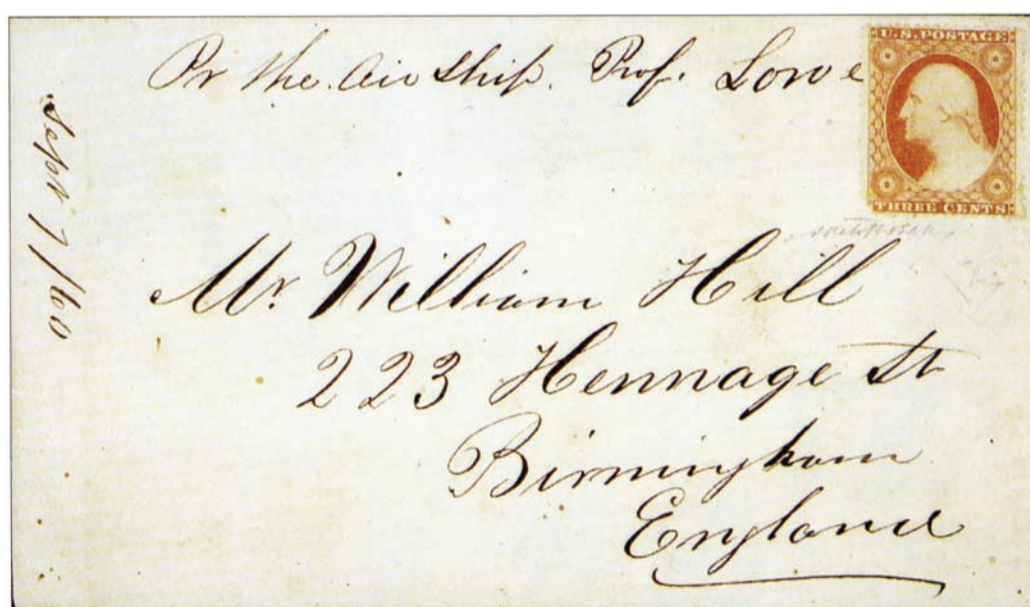 Pr the Air Ship. Prof. Lowe
U.S. POSTAGE
THREE CENTS
Sept 7/60
Mr William Hill
223 Hennage St
Birmingham
England